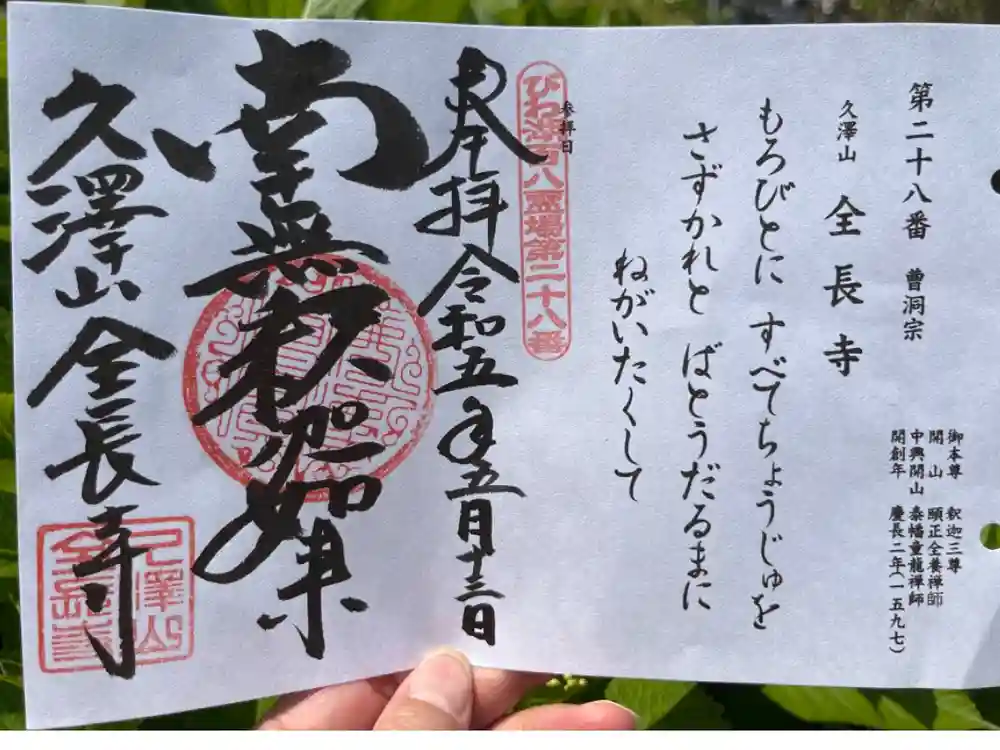 第二十八番 曹洞宗
久澤山 全長寺
御本尊 釈迦三尊
開山 頤正全養禅師
中興開山 泰幡童龍禅師
開創年 慶長二年(一五九七)
もろびとに すべてちょうじゅを
さずかれと ばとうだるまに
ねがいたくして
参拝日
びわ湖百八霊場第二十八番
奉拝 令和五年五月十三日
南無釈迦如来
久澤山 全長寺